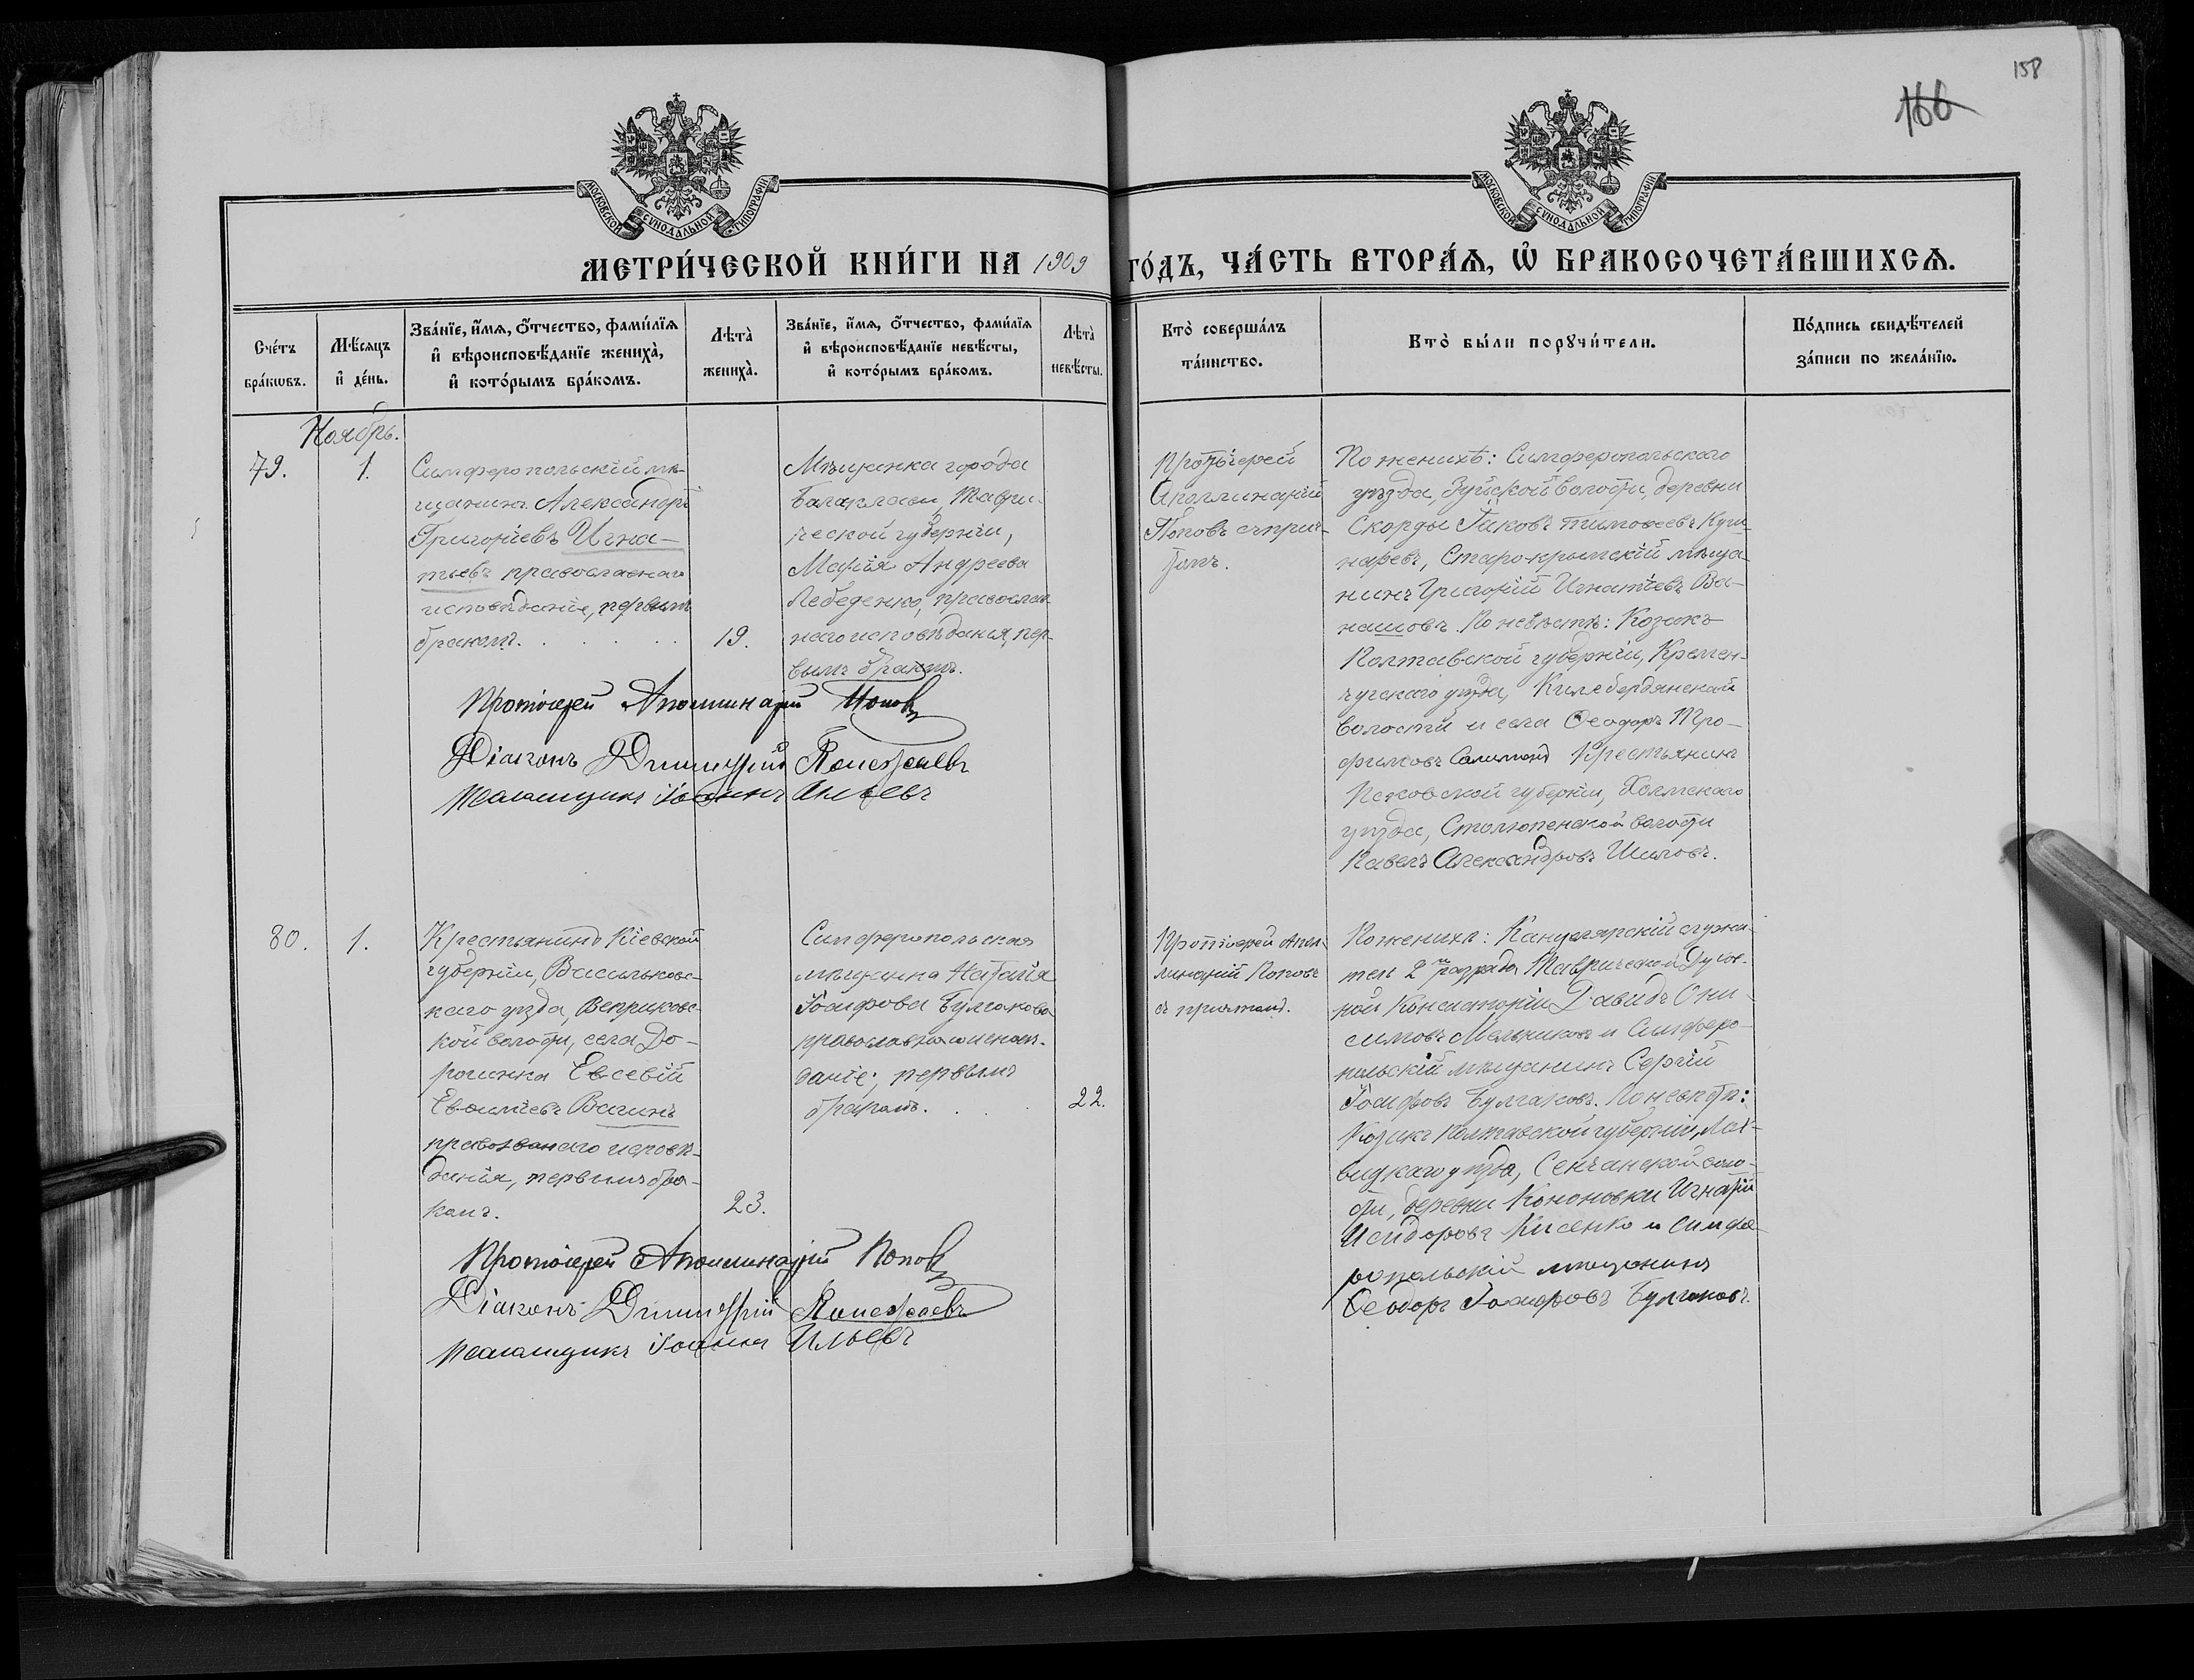 158
166
МОСКОВСКОЙ СУНОДАЛЬНОЙ ТИПОГРАФІИ
МОСКОВСКОЙ СУНОДАЛЬНОЙ ТИПОГРАФІИ
МЕТРИ́ЧЕСКОЙ КНИ́ГИ НА 1909 ГО́ДЪ, ЧА́СТЬ ВТОРА́Ѧ, Ѡ҆ БРАКОСОЧЕТА́ВШИХСѦ.
Сче́тъ
бра́кѡвъ.
Мѣ́сяцъ
и҆ де́нь.
Зва́нїе, и҆́мя, ѻ҆́тчество, фами́лїя
и҆ вѣроисповѣ́данїе жениха̀,
и҆ кото́рымъ бра́комъ.
Лѣта̀
жениха̀.
Зва́нїе, и҆́мя, ѻ҆́тчество, фами́лїя
и҆ вѣроисповѣ́данїе невѣ́сты,
и҆ кото́рымъ бра́комъ.
Лѣта̀
невѣ́сты.
Кто̀ соверша́лъ
та́инство.
Кто̀ бы́ли порꙋчи́тели.
По́дпись свидѣ́телей
за́писи по жела́нїю.
Ноябрь.
79.
1.
Симферопольскій мѣ-
щанинъ Александръ
Григоріевъ Игна-
тьевъ православнаго
исповѣданіе, первым
бракомъ.
19.
Мѣщанка города
Балаклавы, Таври-
ческой губерніи,
Марія Андреева
Лебеденко, православ-
наго исповѣданія, пер-
вымъ бракомъ.
Протоіерей
Аполлинарій
Поповъ съ прич-
томъ.
По женихѣ: Симферопольскаго
уѣзда, Зуйской волости, деревни
Скорды Іаковъ Тимоѳеевъ Куш-
наревъ, Старо-крымскій мѣща-
нинъ Григорій Игнатіевъ Ва-
нашовъ. По невѣстѣ: Козакъ
Полтавской губерніи, Кремен-
чугскаго уѣзда, Килебердянской
волости и села Ѳеодоръ Тро-
фимовъ Крестьянинъ
Псковской губерніи, Холмскаго
уѣзда, волости
Павелъ Александровъ Шиловъ.
Протоіерей Аполлинарій Поповъ
Діаконъ Димитрій
Псаломщикъ Іоаннъ Ильевъ
80.
1.
Крестьянинъ Кіевской
губерніи, Васильковс-
каго уѣзда, Веприковс-
кой волости, села До-
рогинка Евсевій
Евѳиміевъ Вагинъ
православнаго исповѣ-
данія, первымъ бра-
комъ.
23.
Симферопольская
мѣщанка Наталія
Іосифова Булгакова
православнаго исповѣ-
даніе, первымъ
бракомъ.
22.
Протоіерей Апол-
линарій Поповъ
съ причтомъ.
По женихѣ: Канцелярскій служи-
тель 2го разряда Таврической Духов-
ной Консисторіи Давидъ Они-
симовъ Мельниковъ и Симферо-
польскій мѣщанинъ Сергій
Іосифовъ Булгаковъ. По невѣстѣ:
Козакъ Полтавской губерніи, Лох-
вицкаго уѣзда, Сенчанской воло-
сти, деревни Кононовки Игнатій
Исидоровъ Лисенко и Симфе-
ропольскій мѣщанинъ
Ѳеодоръ Іосифовъ Булгаковъ.
Протоіерей Аполлинарій Поповъ
Діаконъ Димитрій
Псаломщикъ Іоаннъ Ильевъ